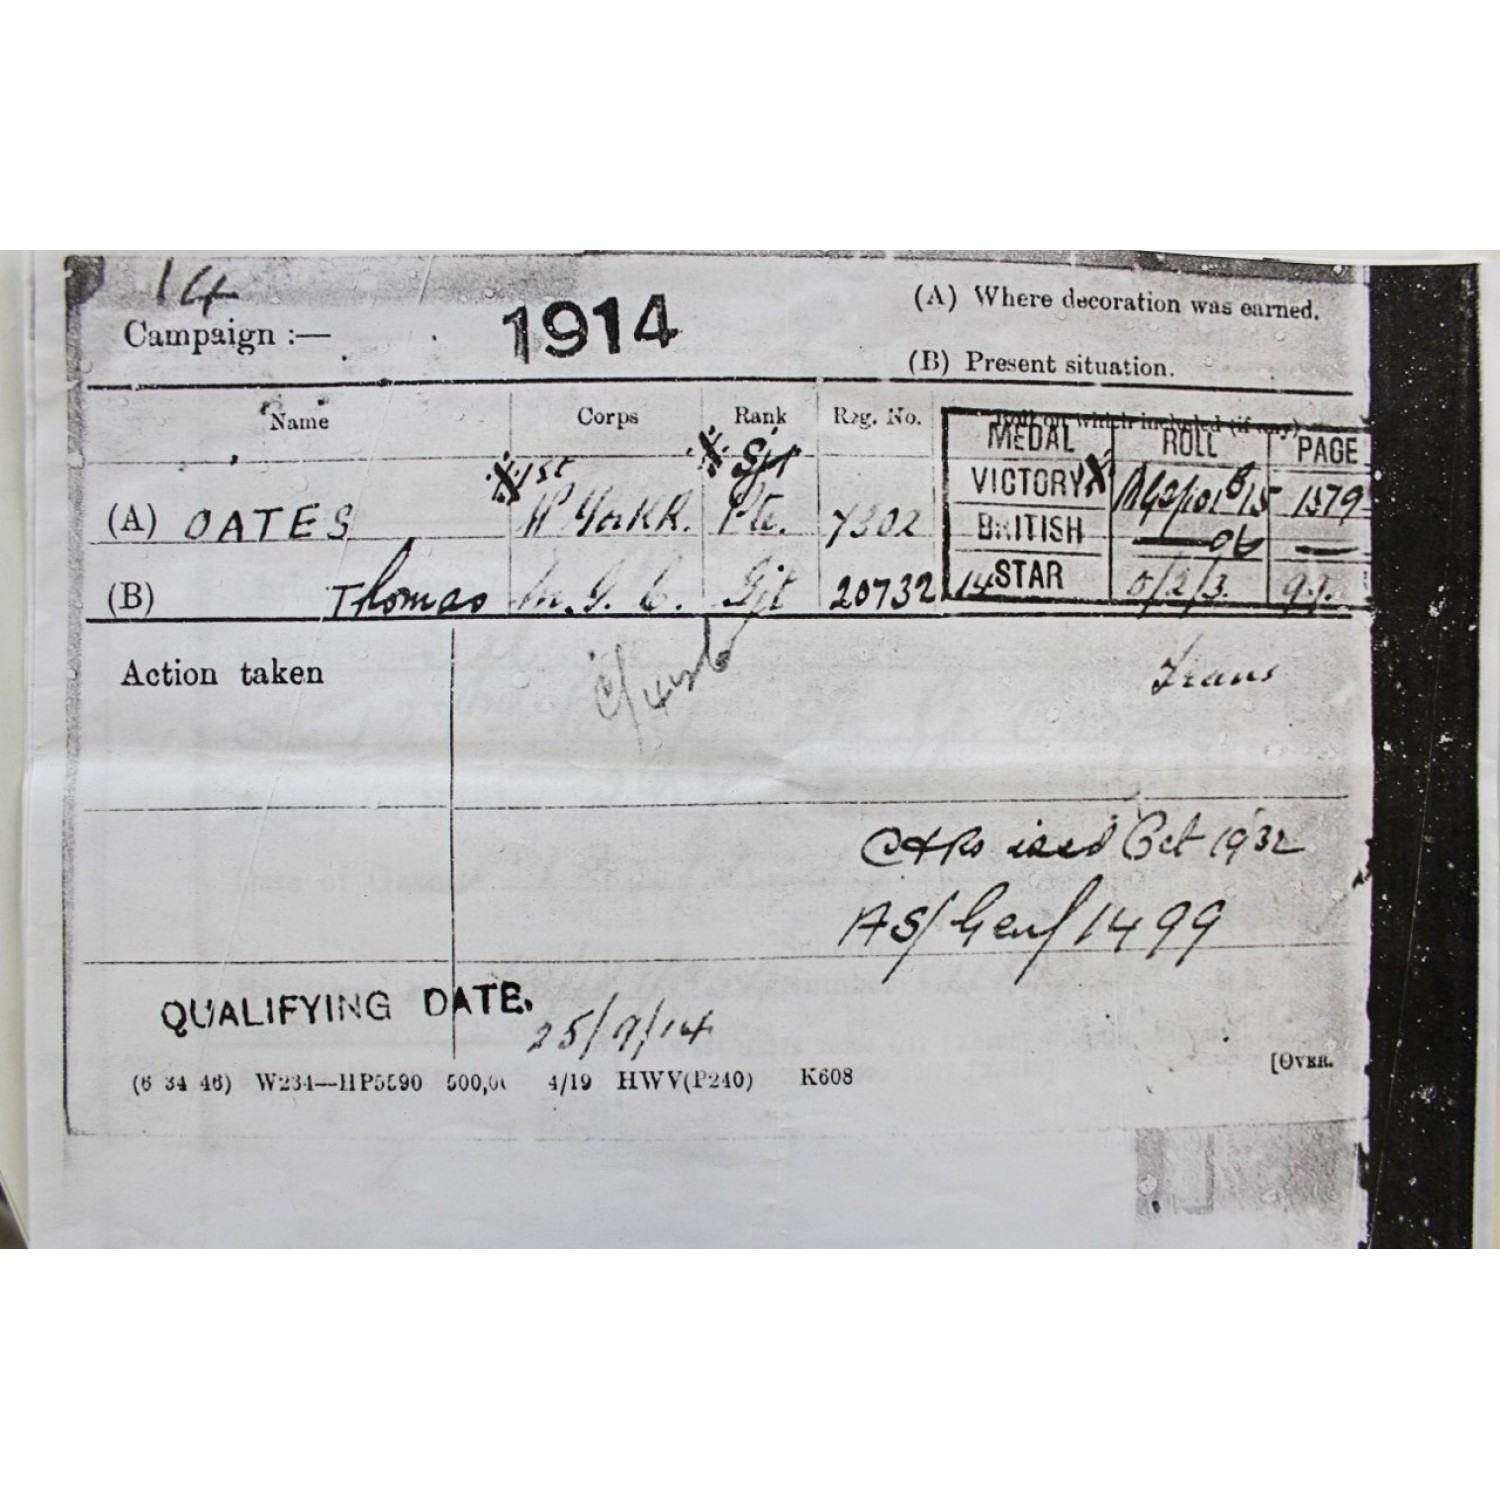 14
Campaign :— 1914
(A) Where decoration was earned.
(B) Present situation.
Name Corps Rank Reg. No. Roll on which included (if any).
MEDAL ROLL PAGE
X 1st X Sjt
(A) OATES W York R. Pte. 7302 VICTORY X 1579
BRITISH —
(B) Thomas M.G.C. Sjt 20732 14 STAR 0/2/3. 99.
Action taken
Trans
issed Oct 1932
AS/Genl/1499
QUALIFYING DATE. 25/9/14
(6 34 46) W234—HP5590 4/19 HWV(P240) K608 [OVER.